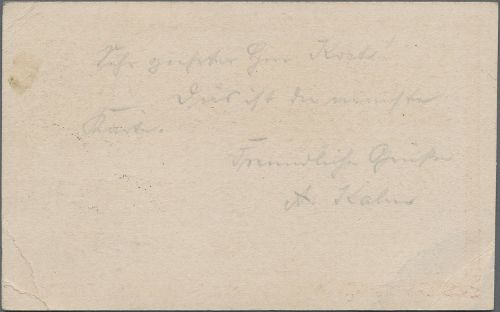 Sehr geehrter Herr
Das ist die neueste
Karte.
Freundliche Grüße
A.